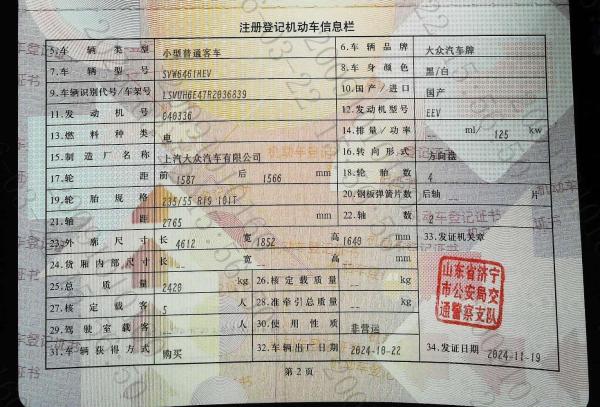 注册登记机动车信息栏
5.车辆类型 小型普通客车 6.车辆品牌 大众汽车牌
7.车辆型号 SVW6461HEV 8.车身颜色 黑/白
9.车辆识别代号/车架号 LSVUH6E47R2036839 10.国产/进口 国产
11.发动机号 040336 12.发动机型号 EEV
13.燃料种类 电 14.排量/功率 -- ml/ 125 kw
15.制造厂名称 上汽大众汽车有限公司 16.转向形式 方向盘
17.轮距 前 1587 后 1566 mm 18.轮胎数 4
19.轮胎规格 235/55 R19 101T 20.钢板弹簧片数 后轴 -- 片
21.轴距 2765 mm 22.轴数 2
23.外廓尺寸 长 4612 宽 1852 高 1640 mm 33.发证机关章
24.货厢内部尺寸 长 -- 宽 -- 高 -- mm
25.总质量 2420 kg 26.核定载质量 -- kg
27.核定载客 5 人 28.准牵引总质量 -- kg
29.驾驶室载客 -- 人 30.使用性质 非营运
31.车辆获得方式 购买 32.车辆出厂日期 2024-10-22 34.发证日期 2024-11-19
山东省济宁
市公安局交
通警察支队
第2页